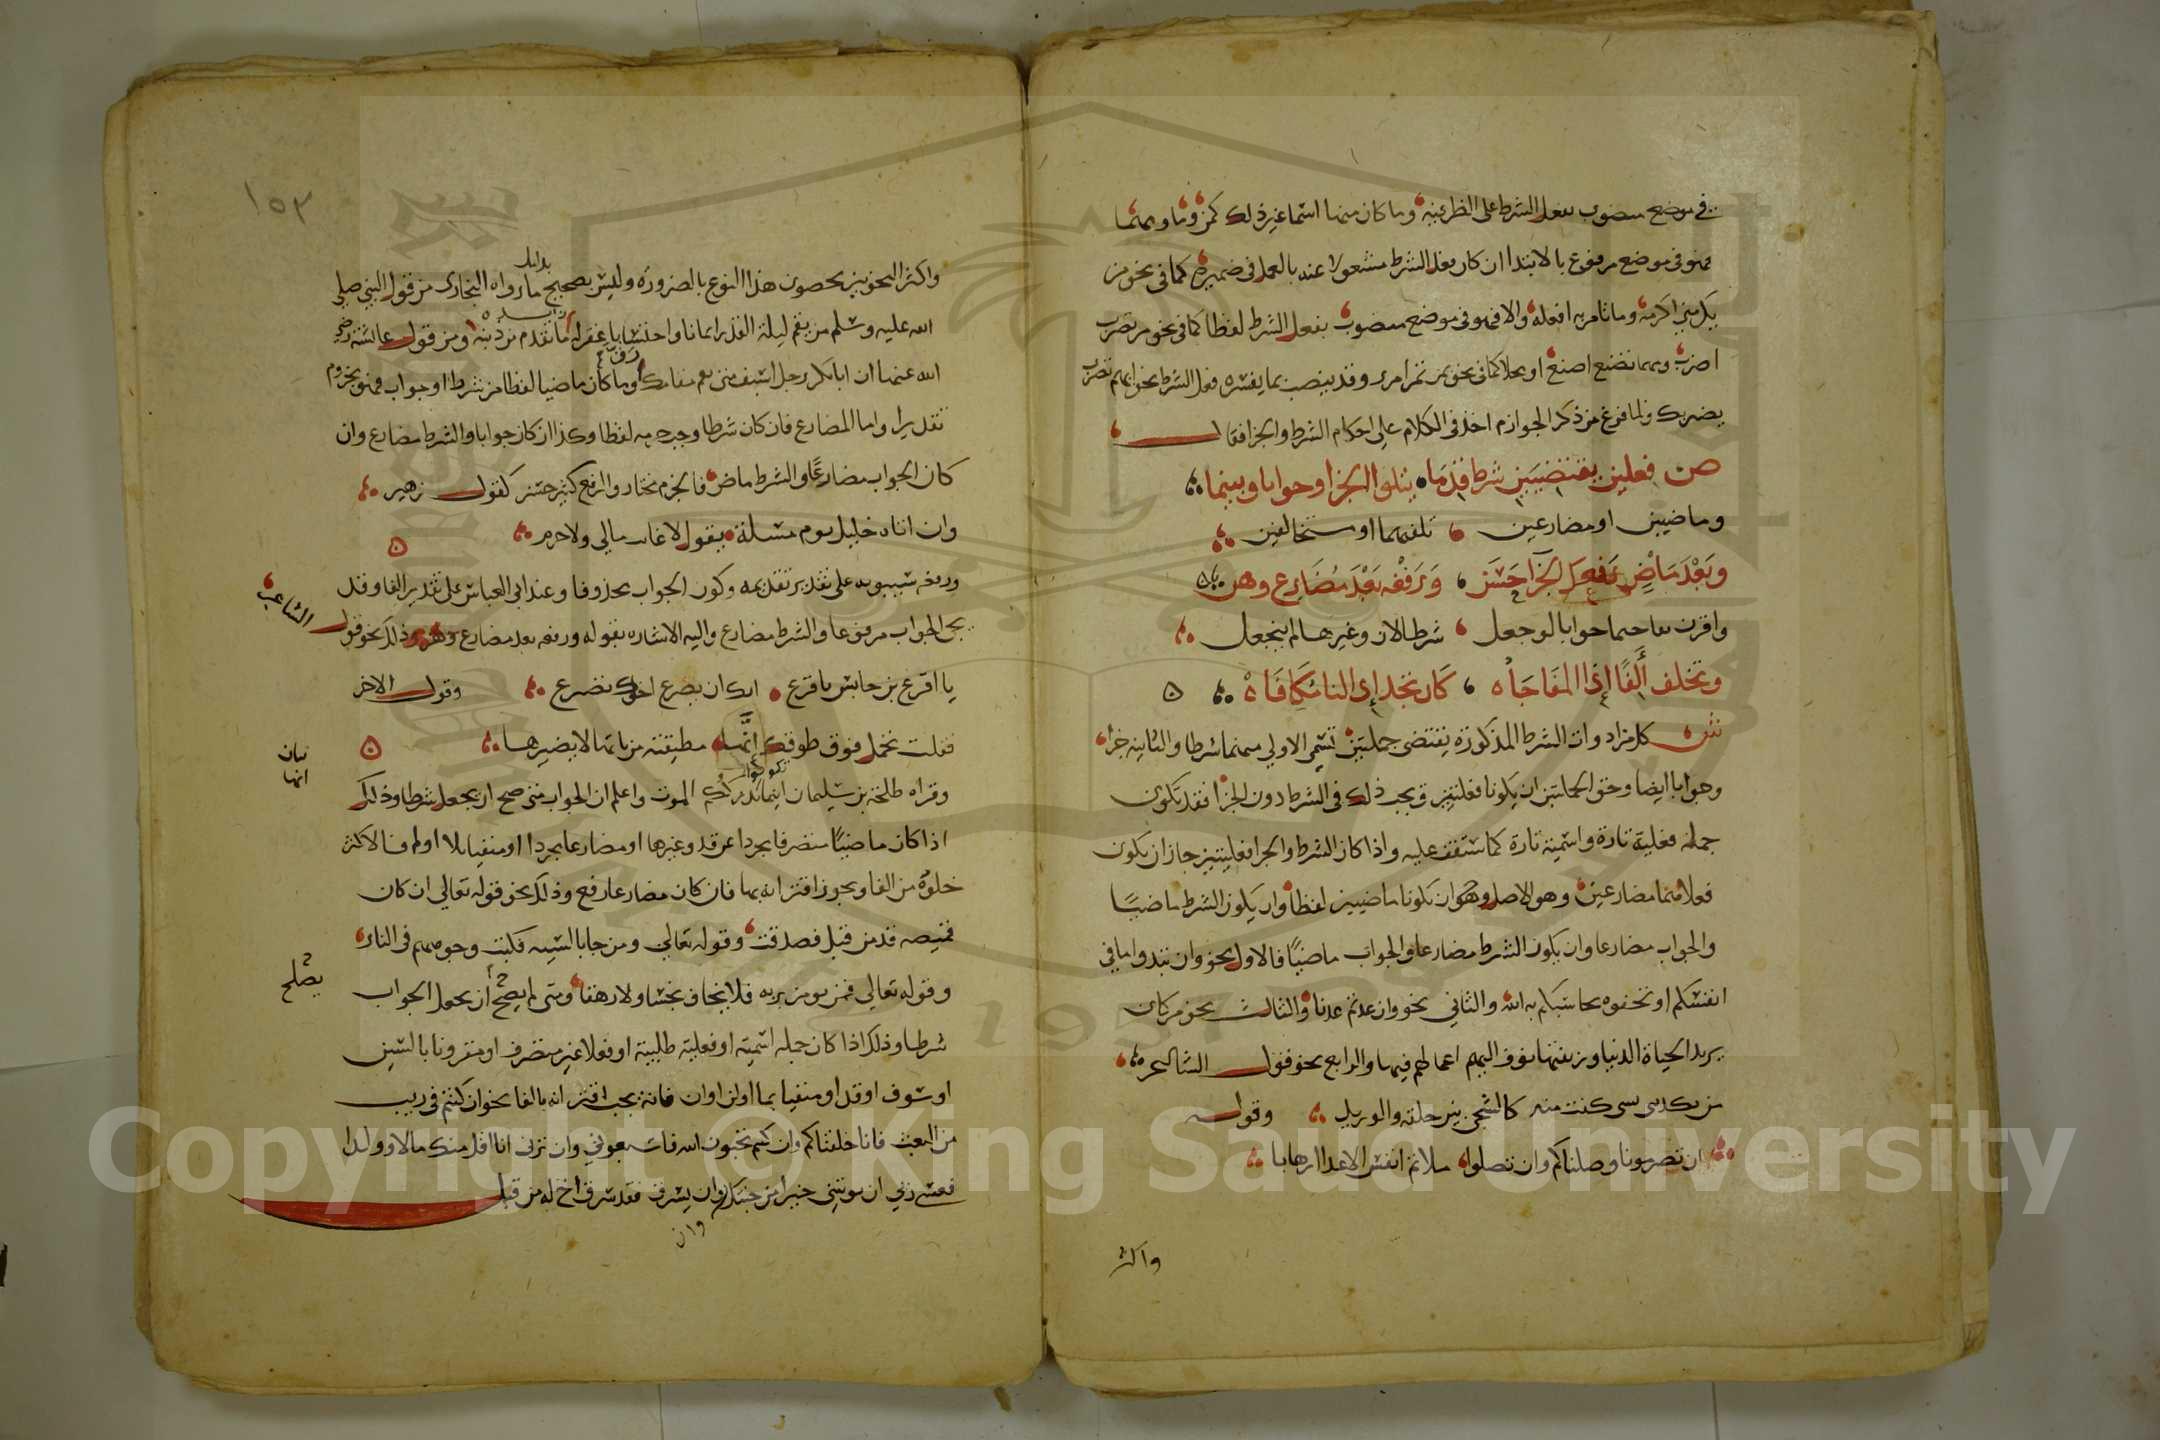 في موضع منصوب بفعل الشرط على الظرفية وما كان منها اسما غير ذلك كمن وما ومهما
فهو في موضع مرفوع بالابتدا ان كان فعل الشرط مشغولا عنه بالعمل في ضميره كما في نحو من
يكرمني اكرمه وما تامر به افعله والا فهو في موضع منصوب بفعل الشرط لفظا كما في نحو من تضرب
اضرب ومهما تصنع اصنع او محلا كما في نحو بمن تمرر امرر وقد ينصب بما يفسره فعل الشرط نحو ايهم تضرب
يضربك ولما فرغ من ذكر الجوازم اخذ في الكلام على احكام الشرط والجزا فقال
ص فعلين يقتضيين شرط قدما يتلو الجزا وجوابا وسما
وماضيين او مضارعين تلفيهما او متخالفين
وبعد ماض رفعك الجزا حسن ورفعه بعد مضارع وهن
واقرن بفا حتما جوابا لو جعل شرطا لان وغيرها لم ينجعل
وتخلف الفا اذا المفاجاه كان تجد اذا لنا مكافاه
ش كل من ادوات الشرط المذكورة يقتضي جملتين تسمى الاولى منهما شرطا والثانية جزا
وجوابا ايضا وحق الجملتين ان يكونا فعليتين ويجب ذلك في الشرط دون الجزا فقد يكون
جملة فعلية تارة واسمية تارة كما ستقف عليه واذا كان الشرط والجزا فعليتين جاز ان يكون
فعلاهما مضارعين وهو الاصل وان يكونا ماضيين لفظا وان يكون الشرط ماضيا
والجواب مضارعا وان يكون الشرط مضارعا والجواب ماضيا فالاول نحو وان تبدوا ما في
انفسكم او تخفوه يحاسبكم به الله والثاني نحو وان عدتم عدنا والثالث نحو من كان
يريد الحياة الدنيا وزينتها نوف اليهم اعمالهم فيها والرابع نحو قول الشاعر
من يكدني بسي كنت منه كالشجى بين حلقه والوريد وقول
ان تصرمونا وصلناكم وان تصلوا ملاتم انفس الاعدا ارهابا
واكثر
١٥٣
واكثر النحويين يخصون هذا النوع بالضرورة وليس بصحيح بدليل ما رواه البخاري من قول النبي صلى
الله عليه وسلم من يقم ليلة القدر ايمانا واحتسابا غفر له ما تقدم من ذنبه ومن قول عائشة رضي
الله عنها ان ابا بكر رجل اسيف متى يقم مقامك رق وما كان ماضيا لفظا من شرط او جواب فهو مجزوم
تقديرا واما المضارع فان كان شرطا وجب جزمه لفظا وكذا ان كان جوابا والشرط مضارع وان
كان الجواب مضارعا والشرط ماض فالجزم مختار والرفع كثير حسن كقول زهير
وان اتاه خليل يوم مسئلة يقول لا غائب مالي ولا حرم
ورفعه سيبويه على تقدير تقديمه وكون الجواب محذوفا وعند ابي العباس على تقدير الفا وقد
يجي الجواب مرفوعا والشرط مضارع واليه الاشارة بقوله ورفعه بعد مضارع وهن وذلك نحو قول الشاعر
يا اقرع بن حابس يا اقرع انك ان يصرع اخوك تصرع وقول الاخر
فقلت تحمل فوق طوقك انها مطبعة من ياتها لا يضيرها
بيان
انها
وقراه طلحة بن سليمان اينما تكونوا يدرككم الموت واعلم ان الجواب متى صح ان يجعل شرطا وذلك
اذا كان ماضيا متصرفا مجردا عن قد وغيرها او مضارعا مجردا او منفيا بلا او لم فالاكثر
خلوه من الفا ويجوز اقترانه بها فان كان مضارعا رفع وذلك نحو قوله تعالى ان كان
قميصه قد من قبل فصدقت وقوله تعالى ومن جا بالسيئه فكبت وجوههم في النار
وقوله تعالى فمن يومن بربه فلا يخاف بخسا ولا رهقا ومتى لم يصح ان يجعل الجواب
يصلح
شرطا وذلك اذا كان جملة اسمية او فعلية طلبية او فعلا غير متصرف او مقرونا بالسين
او سوف او قد او منفيا بما او لن او ان فانه يجب اقترانه بالفا نحو ان كنتم في ريب
من البعث فانا خلقناكم وان كنتم تحبون الله فاتبعوني وان ترني انا اقل منك مالا وولدا
فعسى ربي ان يوتيني خيرا من جنتك وان يسرق فقد سرق اخ له من قبل
وان
Copyright © King Saud University